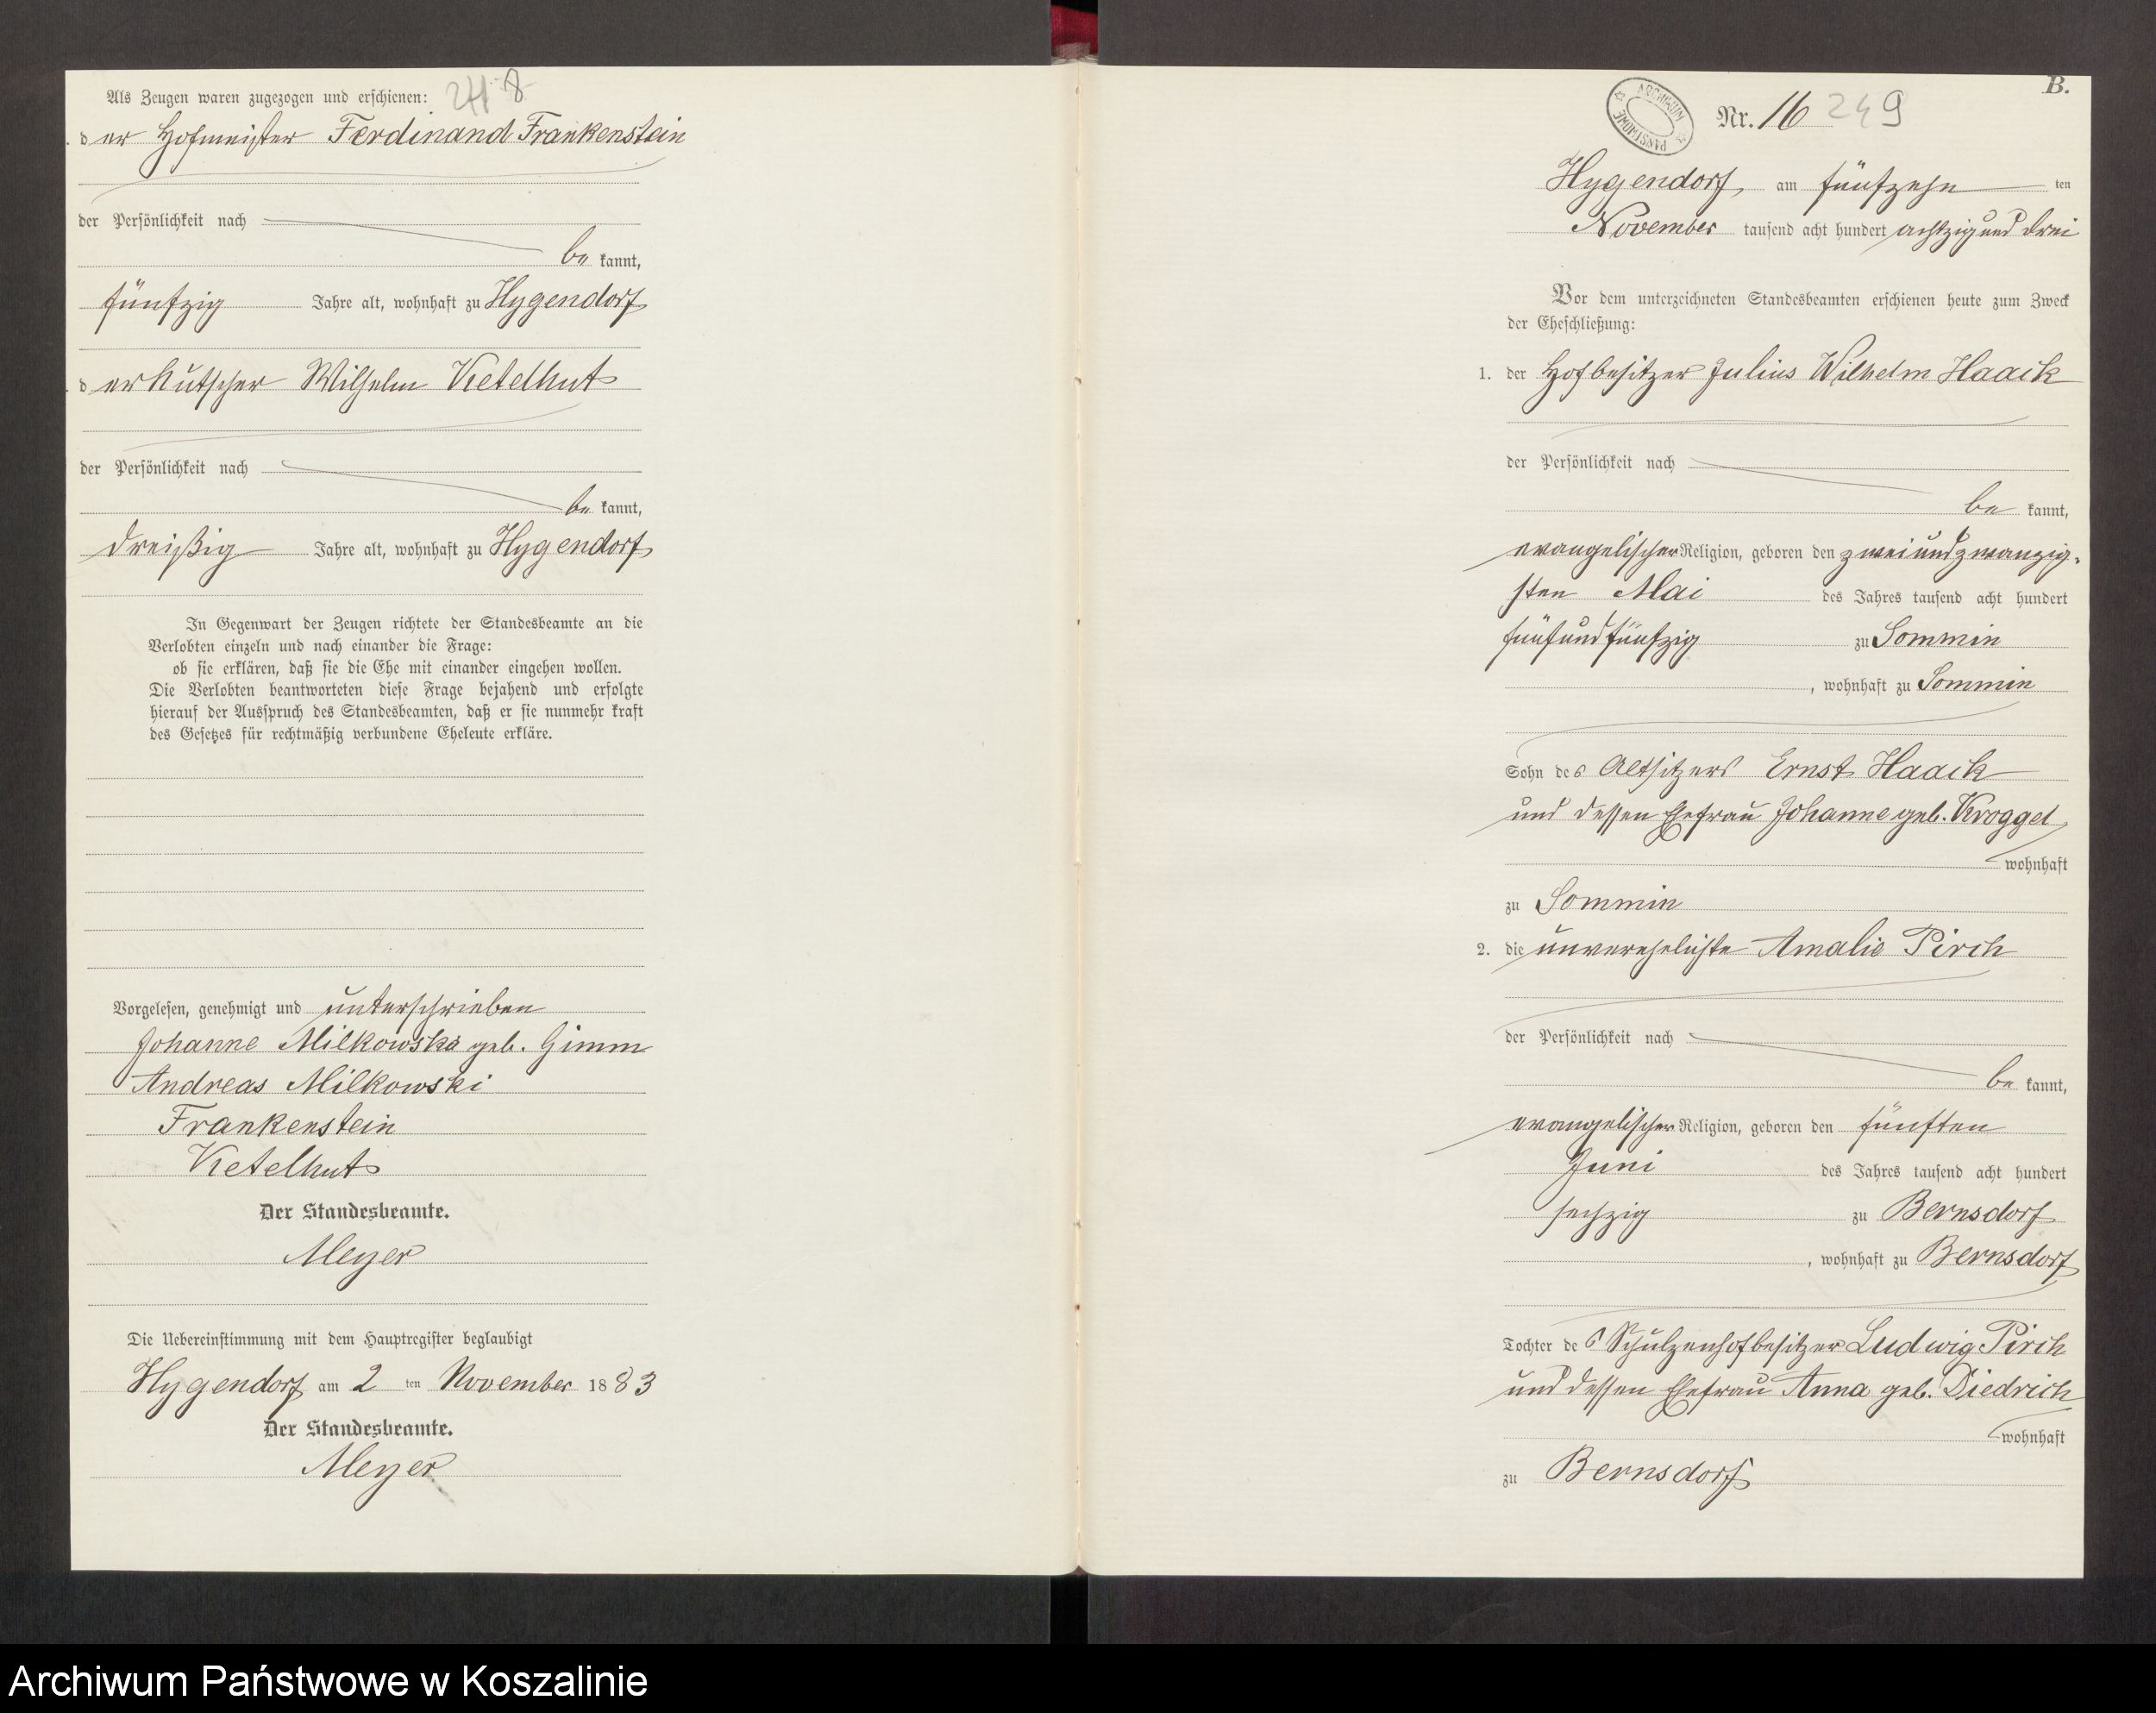 Als Zeugen waren zugezogen und erschienen: 248
der Hofmeister Ferdinand Frankenstein
der Persönlichkeit nach
be kannt,
fünfzig Jahre alt, wohnhaft zu Hygendorf
der Kutscher Wilhelm Ketelhut
der Persönlichkeit nach
be kannt,
dreißig Jahre alt, wohnhaft zu Hygendorf
In Gegenwart der Zeugen richtete der Standesbeamte an die
Verlobten einzeln und nach einander die Frage:
ob sie erklären, daß sie die Ehe mit einander eingehen wollen.
Die Verlobten beantworteten diese Frage bejahend und erfolgte
hierauf der Ausspruch des Standesbeamten, daß er sie nunmehr kraft
des Gesetzes für rechtmäßig verbundene Eheleute erkläre.
Vorgelesen, genehmigt und unterschrieben
Johanne Milkowska geb. Gimm
Andreas Milkowski
Frankenstein
Ketelhut
Der Standesbeamte.
Meyer
Die Uebereinstimmung mit dem Hauptregister beglaubigt
Hygendorf am 2 ten November 1883
Der Standesbeamte.
Meyer
B.
ARCHIWUM PAŃSTWOWE
Nr. 16 249
Hygendorf, am fünfzehn ten
November tausend acht hundert achtzig und drei
Vor dem unterzeichneten Standesbeamten erschienen heute zum Zweck
der Eheschließung:
1. der Hofbesitzer Julius Wilhelm Haack
der Persönlichkeit nach
be kannt,
evangelischer Religion, geboren den zweiundzwanzig-
sten Mai des Jahres tausend acht hundert
fünfundfünfzig zu Sommin
, wohnhaft zu Sommin
Sohn des Altsitzers Ernst Haack
und dessen Ehefrau Johanne geb. Kroggel
wohnhaft
zu Sommin
2. die unverehelichte Amalie Pirch
der Persönlichkeit nach
be kannt,
evangelischer Religion, geboren den fünften
Juni des Jahres tausend acht hundert
sechzig zu Bernsdorf
, wohnhaft zu Bernsdorf
Tochter des Schulzenhofbesitzer Ludwig Pirch
und dessen Ehefrau Anna geb. Diedrich
wohnhaft
zu Bernsdorf
Archiwum Państwowe w Koszalinie